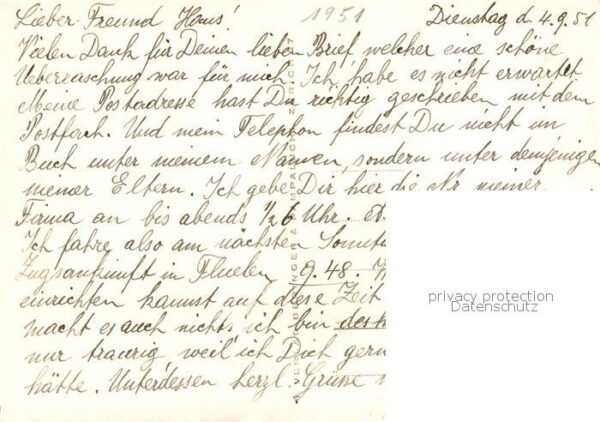 Lieber Freund Hans! 1951 Dienstag d. 4.9.51
Vielen Dank für Deinen lieben Brief welcher eine schöne
Ueberraschung war für mich. Ich habe es nicht erwartet.
Meine Postadresse hast Du richtig geschrieben mit dem
Postfach. Und mein Telephon findest Du nicht im
Buch unter meinem Namen, sondern unter demjenigen
meiner Eltern. Ich gebe Dir hier die Nr meiner
Firma an bis abends ½ 6 Uhr.
Ich fahre also am nächsten
Zugsankunft in Fluelen 9.48
einrichten kannst auf diese Zeit
macht es auch nichts ich bin
nur traurig, weil ich Dich
hätte. Unterdessen herzl. Grüsse
privacy protection
Datenschutz